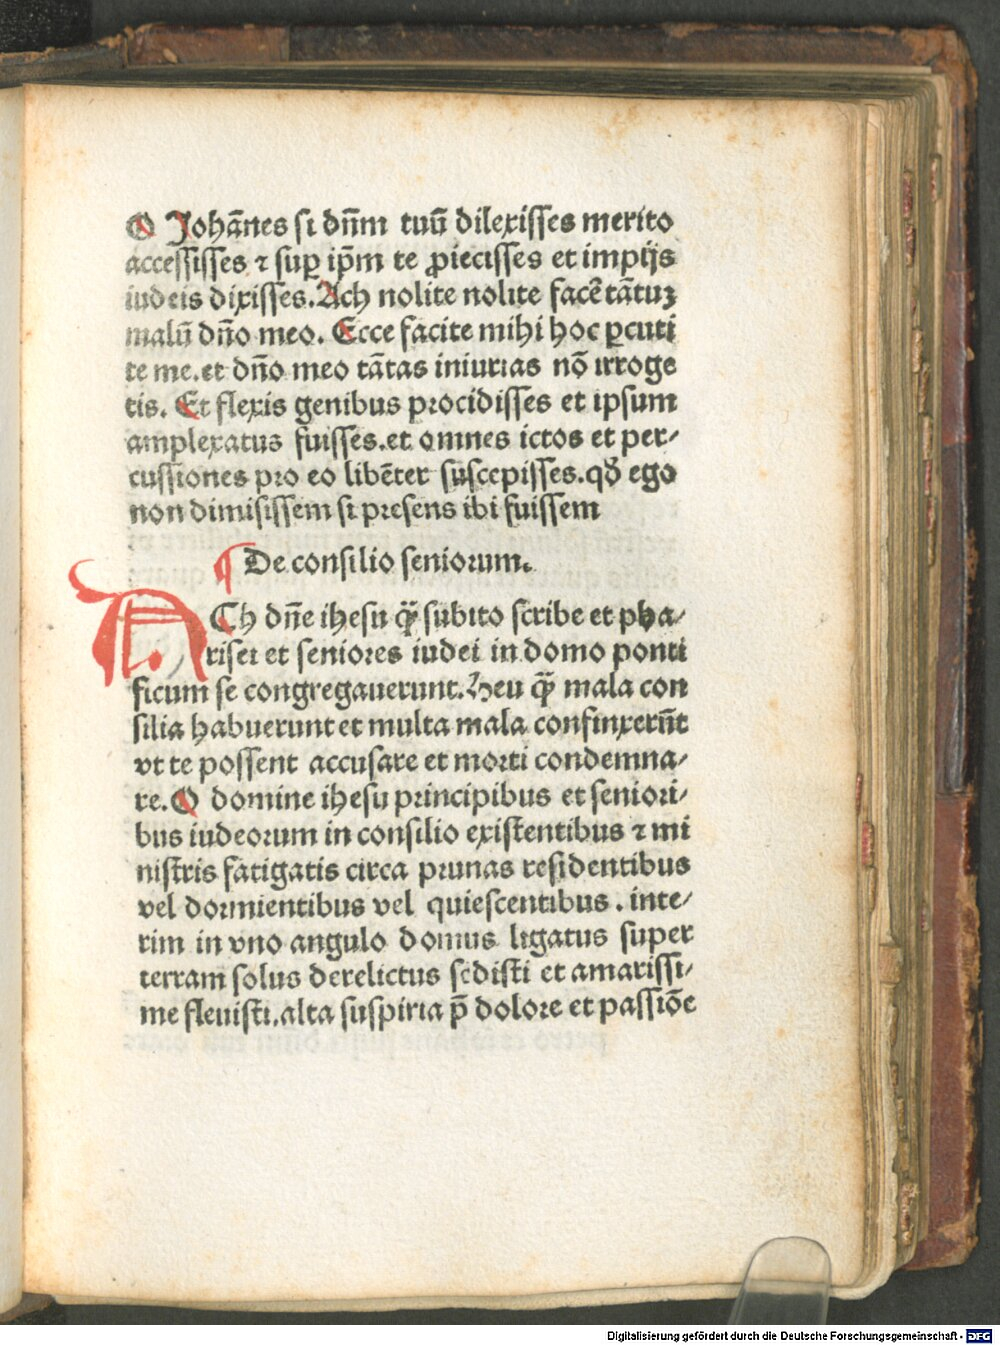 O Johānes si dn̄m tuū dilexisses merito
accessisses ⁊ sup̱ ip̄m te ꝓiecisses et impijs
iudeis dixisses. Ach nolite nolite facē tātuꝫ
malū dn̄o meo. Ecce facite mihi hoc ꝑcuti
te me. et dn̄o meo tātas iniurias nō irroge
tis. Et flexis genibus procidisses et ipsum
amplexatus fuisses. et omnes ictos et per⸗
cussiones pro eo libēter suscepisses. qd̄ ego
non dimisissem si presens ibi fuissem
¶ De consilio seniorum.
ACh dn̄e ihesu q̄ꝫ subito scribe et pha⸗
risei et seniores iudei in domo ponti
ficum se congregauerunt. Heu q̄ꝫ mala con
silia habuerunt et multa mala confinxerūt
vt te possent accusare et morti condemna⸗
re. O domine ihesu principibus et seniori⸗
bus iudeorum in consilio existentibus ⁊ mi
nistris fatigatis circa prunas residentibus
vel dormientibus vel quiescentibus. inte⸗
rim in vno angulo domus ligatus super
terram solus derelictus sedisti et amarissi⸗
me fleuisti. alta suspiria p̄ dolore et passiōe
Digitalisierung gefördert durch die Deutsche Forschungsgemeinschaft - DFG